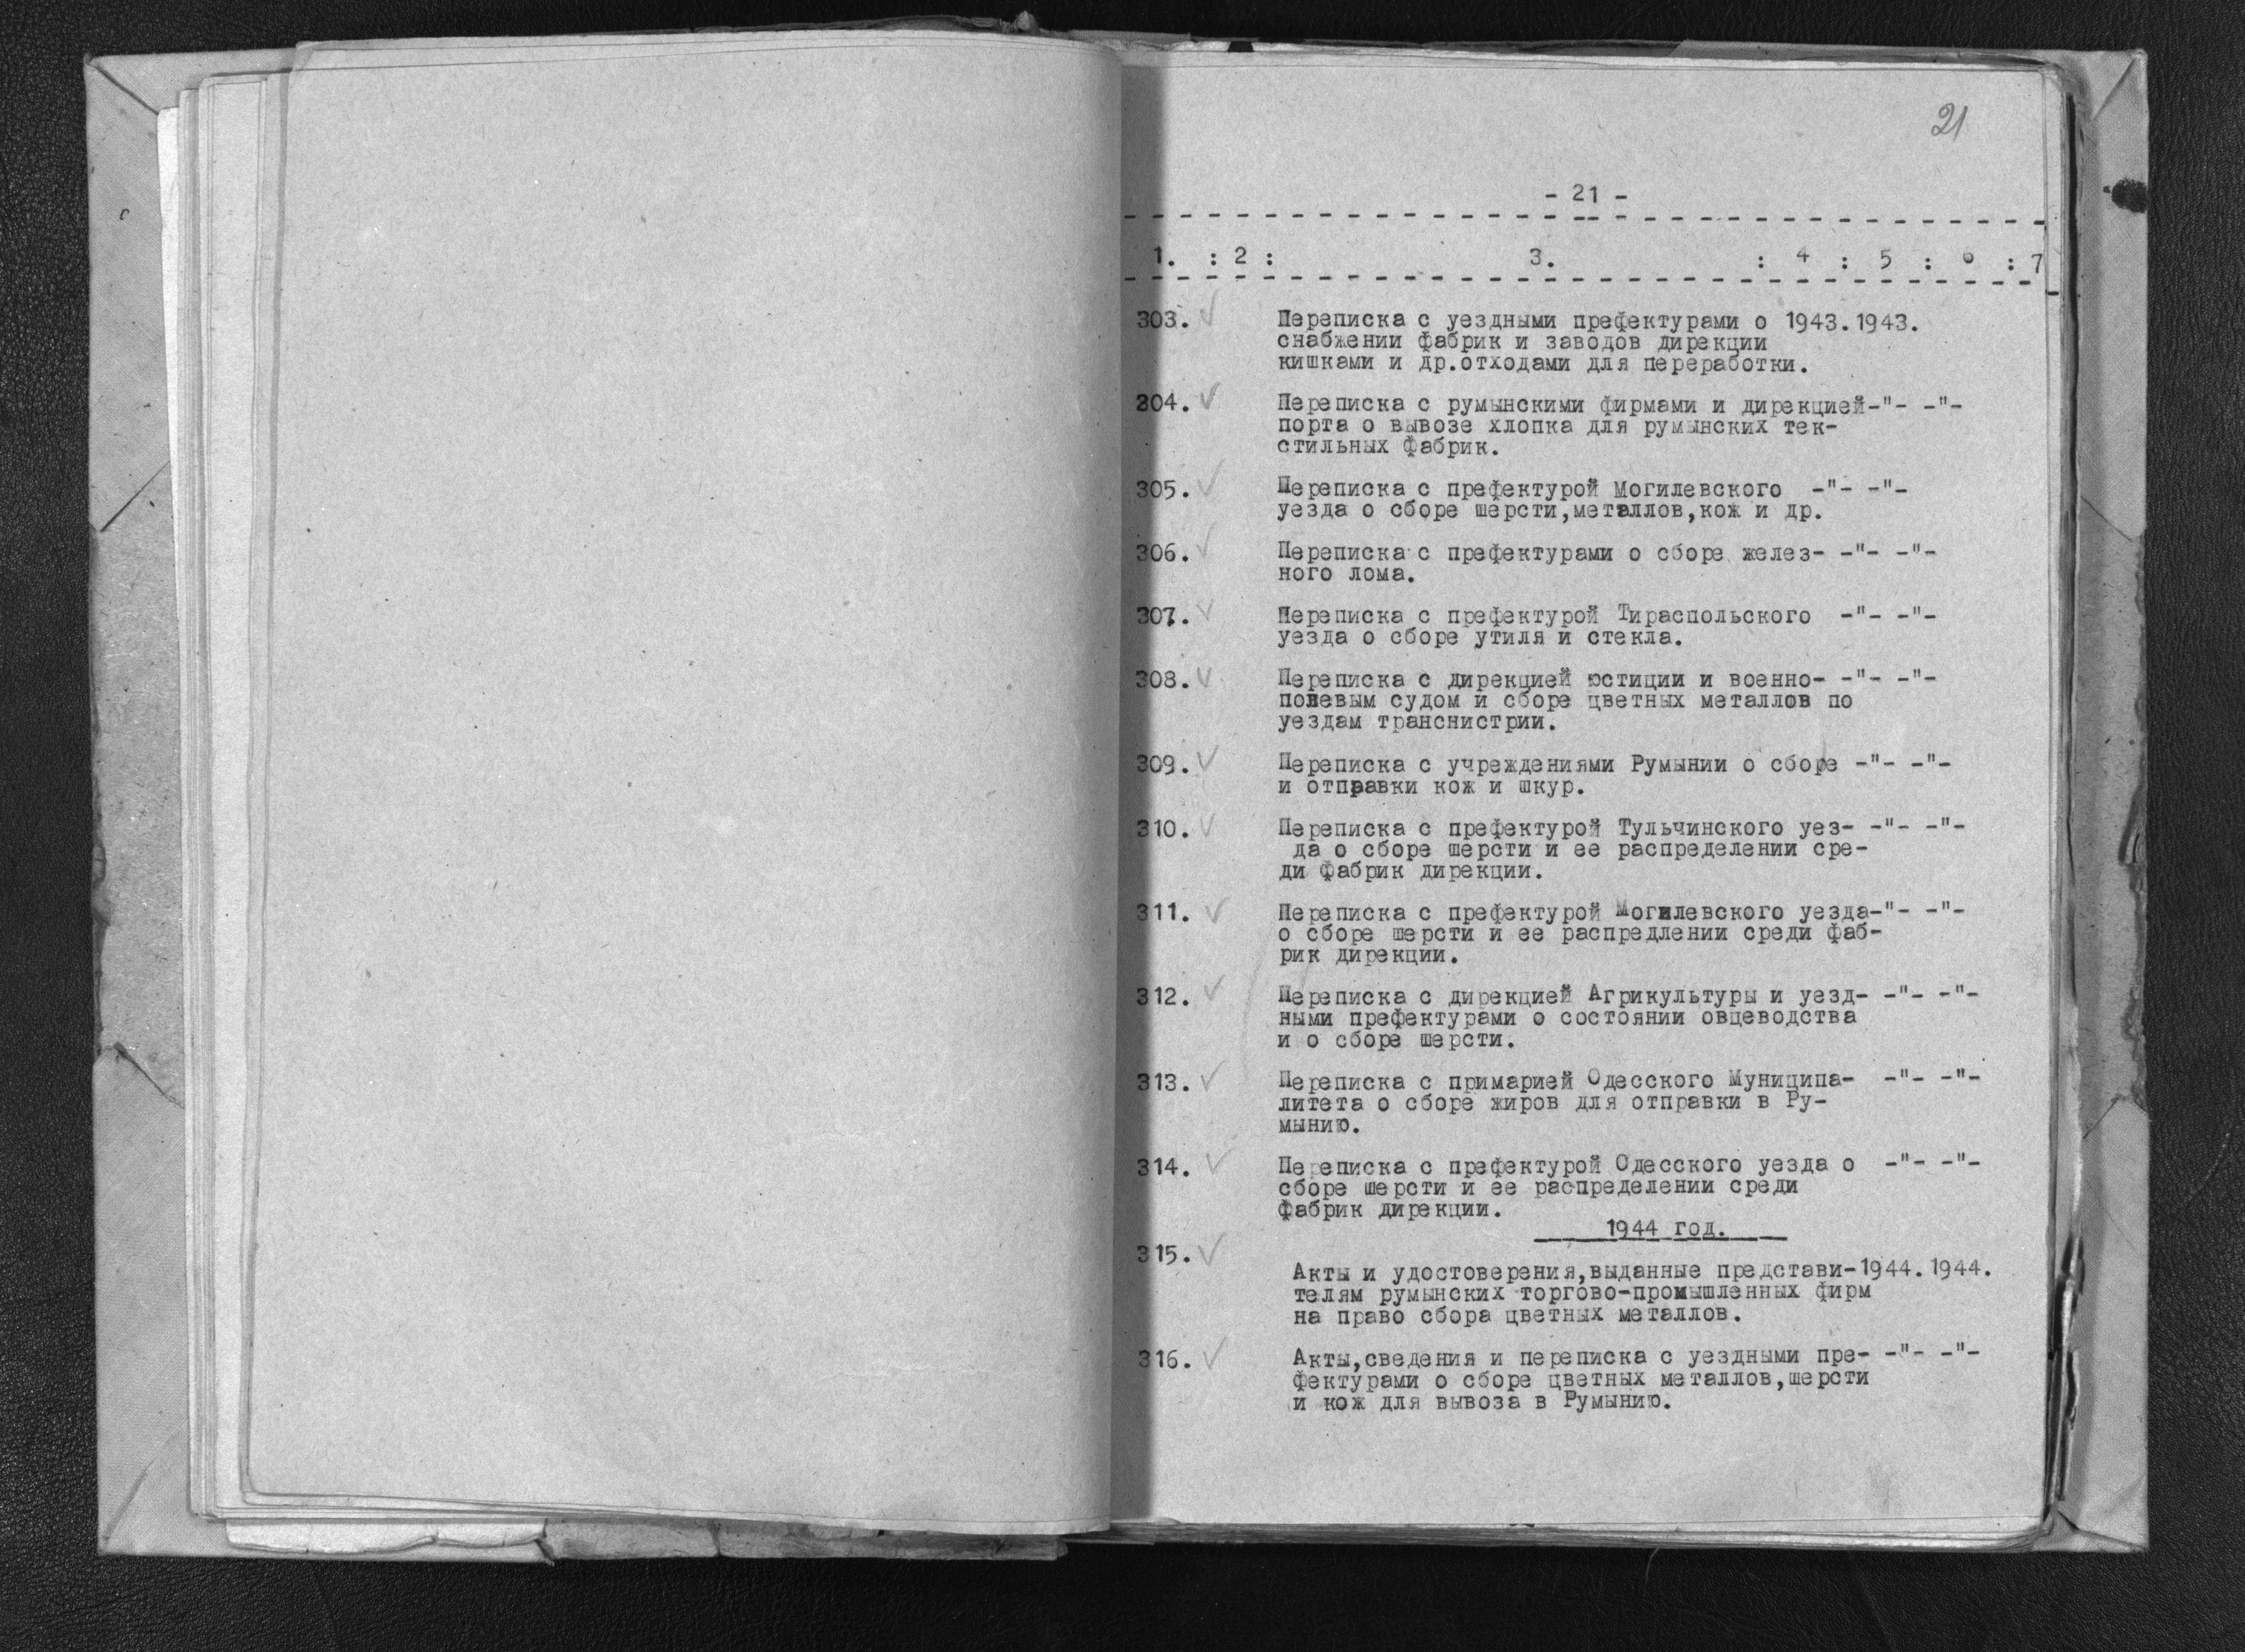 21
- 21 -
1. : 2 : 3. : 4 : 5 : 6 : 7
303. Переписка с уездными префектурами о 1943.1943.
снабжении фабрик и заводов дирекции
кишками и др.отходами для переработки.
304. Переписка с румынскими фирмами и дирекцией-"- -"-
порта о вывозе хлопка для румынских тек-
стильных фабрик.
305. Переписка с префектурой Могилевского -"- -"-
уезда о сборе шерсти,металлов,кож и др.
306. Переписка с префектурами о сборе желез- -"- -"-
ного лома.
307. Переписка с префектурой Тираспольского -"- -"-
уезда о сборе утиля и стекла.
308. Переписка с дирекцией юстиции и военно- -"- -"-
полевым судом и сборе цветных металлов по
уездам транснистрии.
309. Переписка с учреждениями Румынии о сборе -"- -"-
и отправки кож и шкур.
310. Переписка с префектурой Тульчинского уез- -"- -"-
да о сборе шерсти и ее распределении сре-
ди фабрик дирекции.
311. Переписка с префектурой Могилевского уезда-"- -"-
о сборе шерсти и ее распредлении среди фаб-
рик дирекции.
312. Переписка с дирекцией Агрикультуры и уезд- -"- -"-
ными префектурами о состоянии овцеводства
и о сборе шерсти.
313. Переписка с примарией Одесского Муниципа- -"- -"-
литета о сборе жиров для отправки в Ру-
мынию.
314. Переписка с префектурой Одесского уезда о -"- -"-
сборе шерсти и ее распределении среди
фабрик дирекции.
1944 год.
315.
Акты и удостоверения,выданные представи-1944.1944.
телям румынских торгово-промышленных фирм
на право сбора цветных металлов.
316. Акты,сведения и переписка с уездными пре- -"- -"-
фектурами о сборе цветных металлов,шерсти
и кож для вывоза в Румынию.